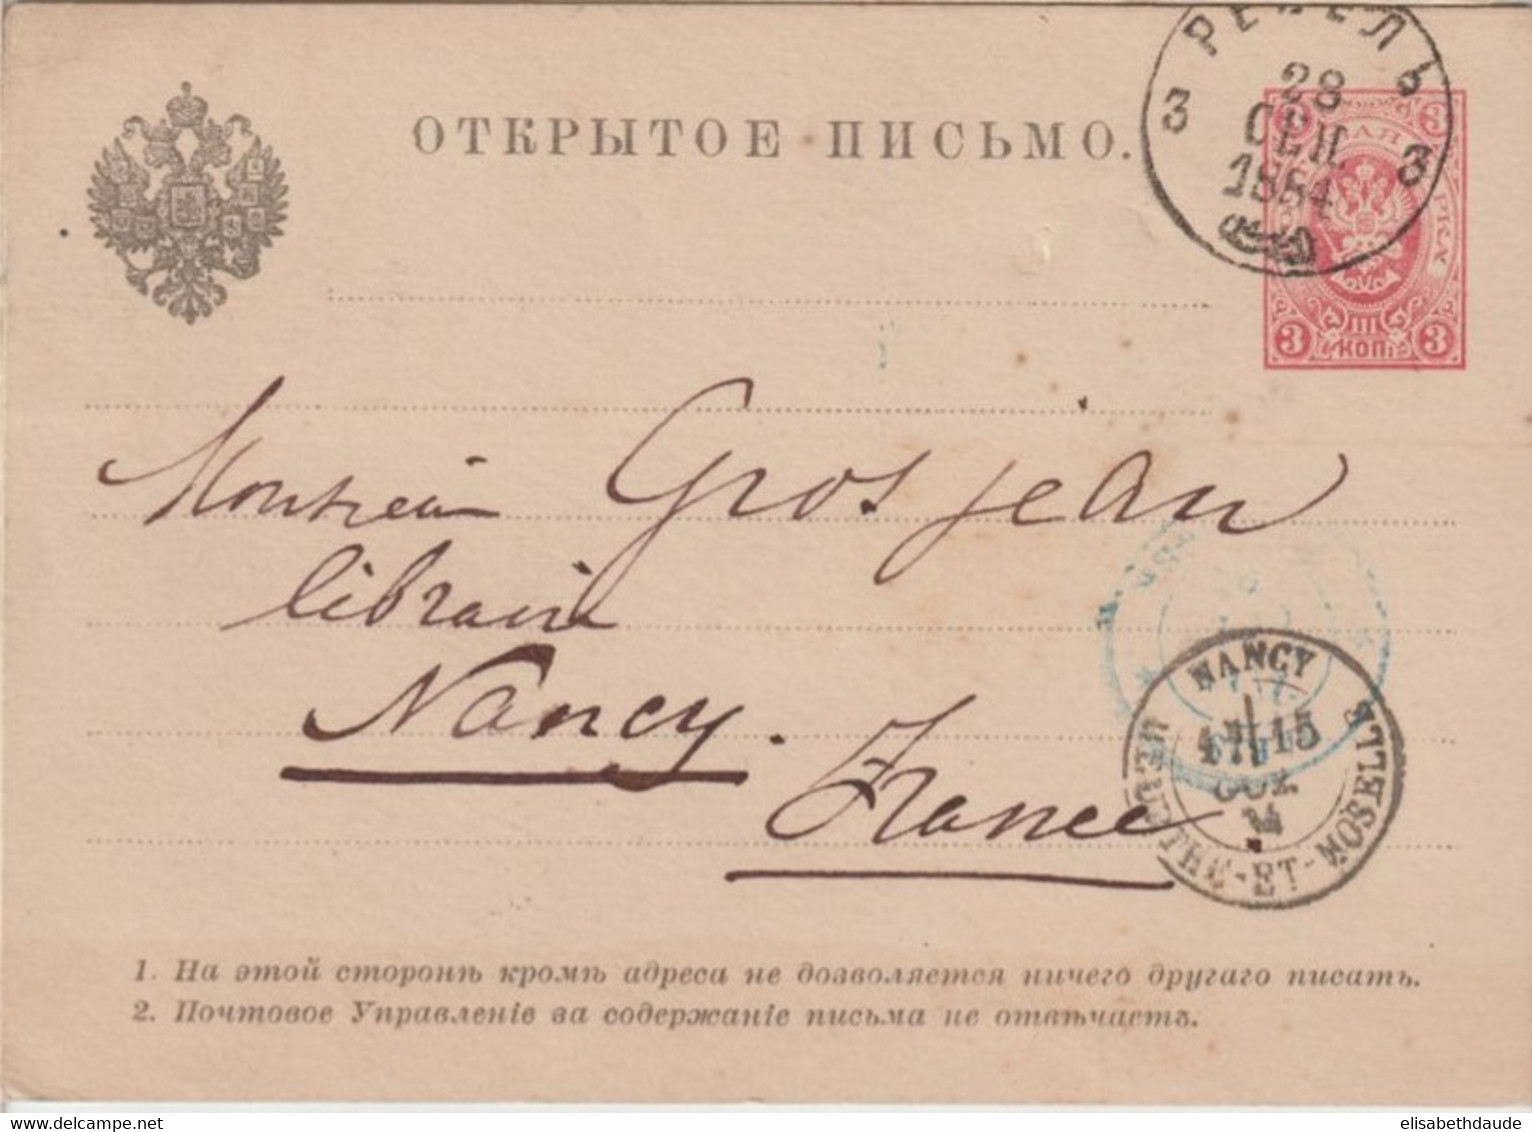 РЕВЕЛЬ
3 28 3
СЕП.
1884
ОТКРЫТОЕ ПИСЬМО.
3 3
МАРКА
3 III КОП. 3
Monsieur Grosjean
libraire
Nancy.
France
NANCY
15
OCT.
84
MEURTHE-ET-MOSELLE
1. На этой сторонѣ кромѣ адреса не дозволяется ничего другаго писать.
2. Почтовое Управленіе за содержаніе письма не отвѣчаетъ.
delcampe.net
elisabethdaude